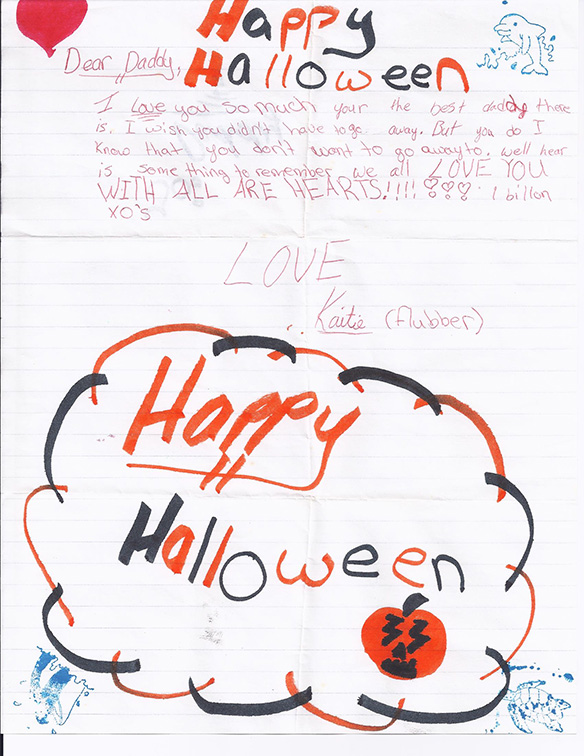 Happy
Halloween
Dear Daddy,
I Love you so much your the best daddy there
is. I wish you didn't have to go away. But you do I
know that you don't want to go away to. well hear
is some thing to remember we all LOVE YOU
WITH ALL ARE HEARTS!!!! 1 billon
XO's
LOVE
Kaitie (flubber)
Happy
Halloween